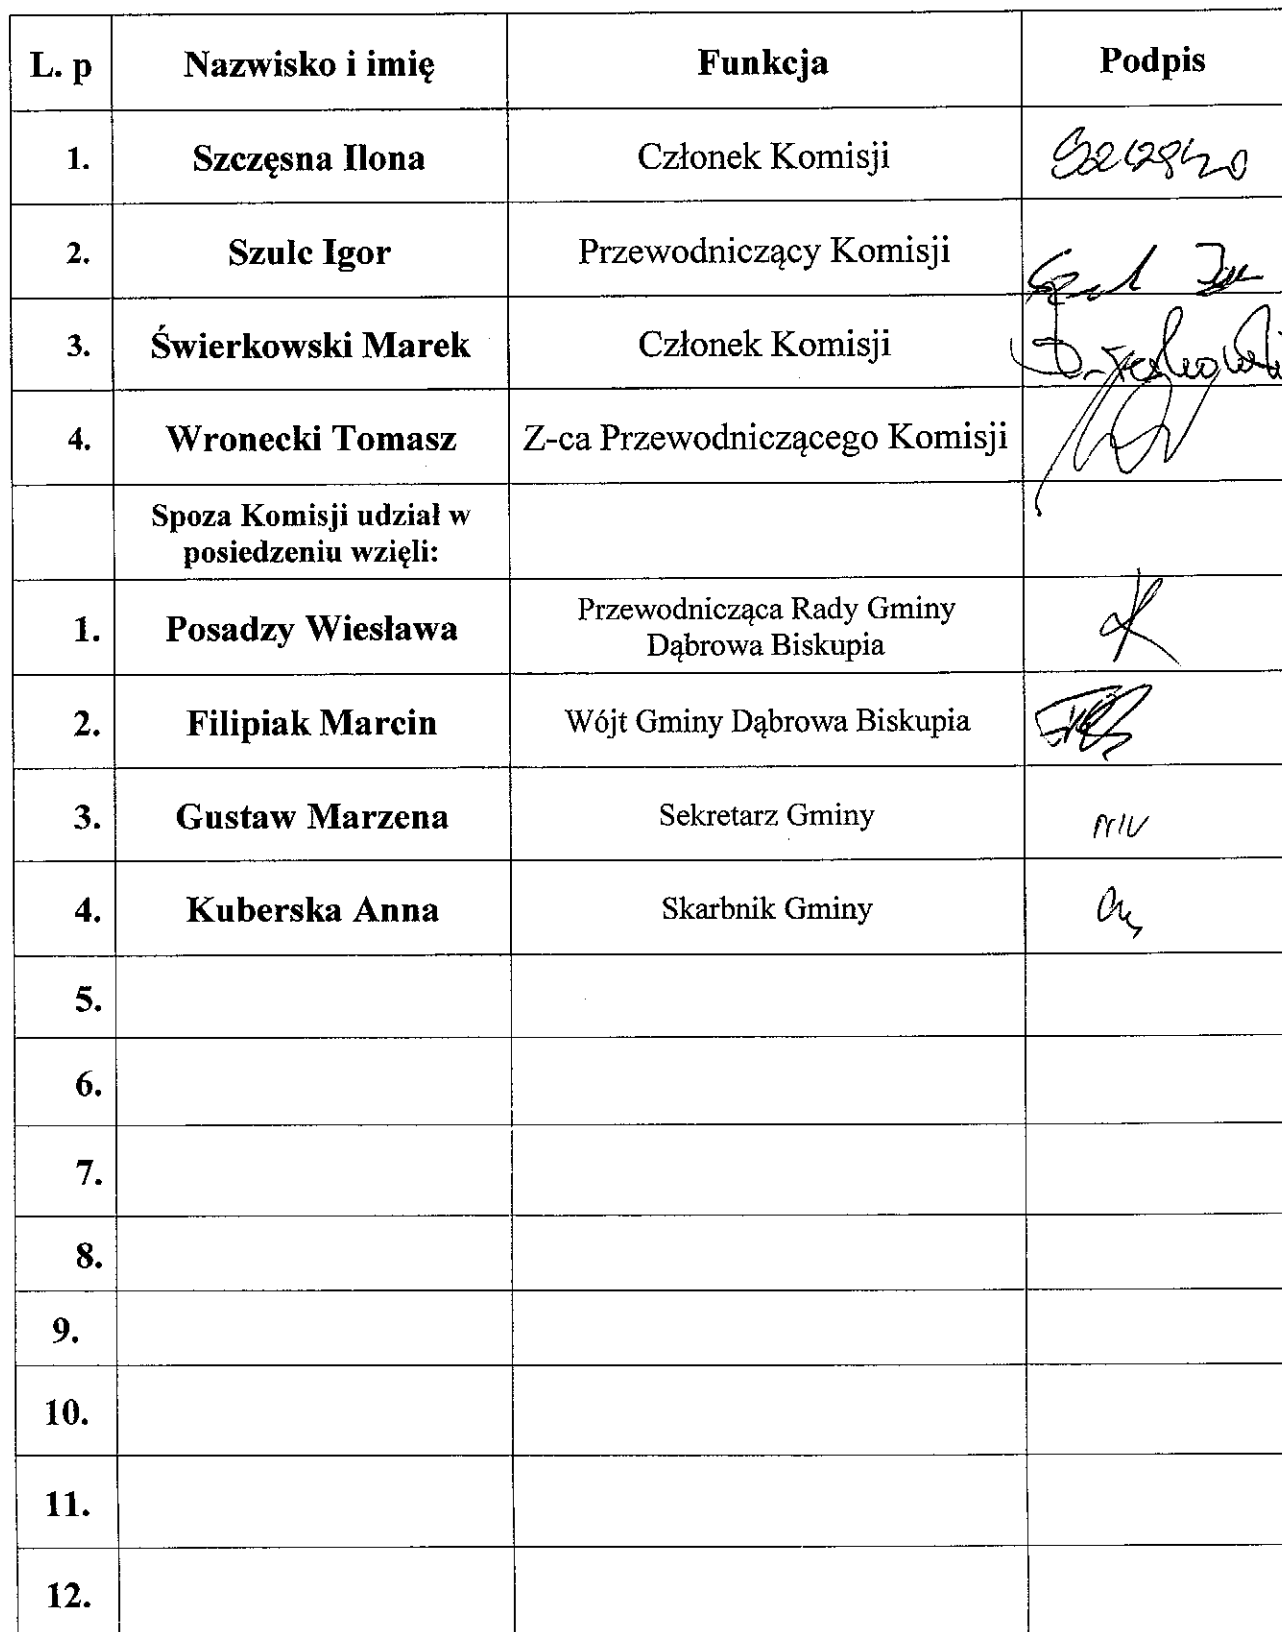 L. p Nazwisko i imię Funkcja Podpis
1. Szczęsna Ilona Członek Komisji
2. Szulc Igor Przewodniczący Komisji
3. Świerkowski Marek Członek Komisji
4. Wronecki Tomasz Z-ca Przewodniczącego Komisji
Spoza Komisji udział w
posiedzeniu wzięli:
1. Posadzy Wiesława Przewodnicząca Rady Gminy
Dąbrowa Biskupia
2. Filipiak Marcin Wójt Gminy Dąbrowa Biskupia
3. Gustaw Marzena Sekretarz Gminy
4. Kuberska Anna Skarbnik Gminy
5.
6.
7.
8.
9.
10.
11.
12.